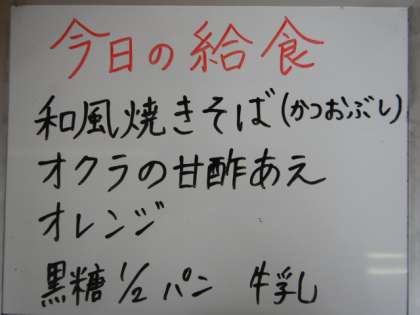 今日の給食
和風焼きそば(かつおぶし)
オクラの甘酢あえ
オレンジ
黒糖1/2パン 牛乳